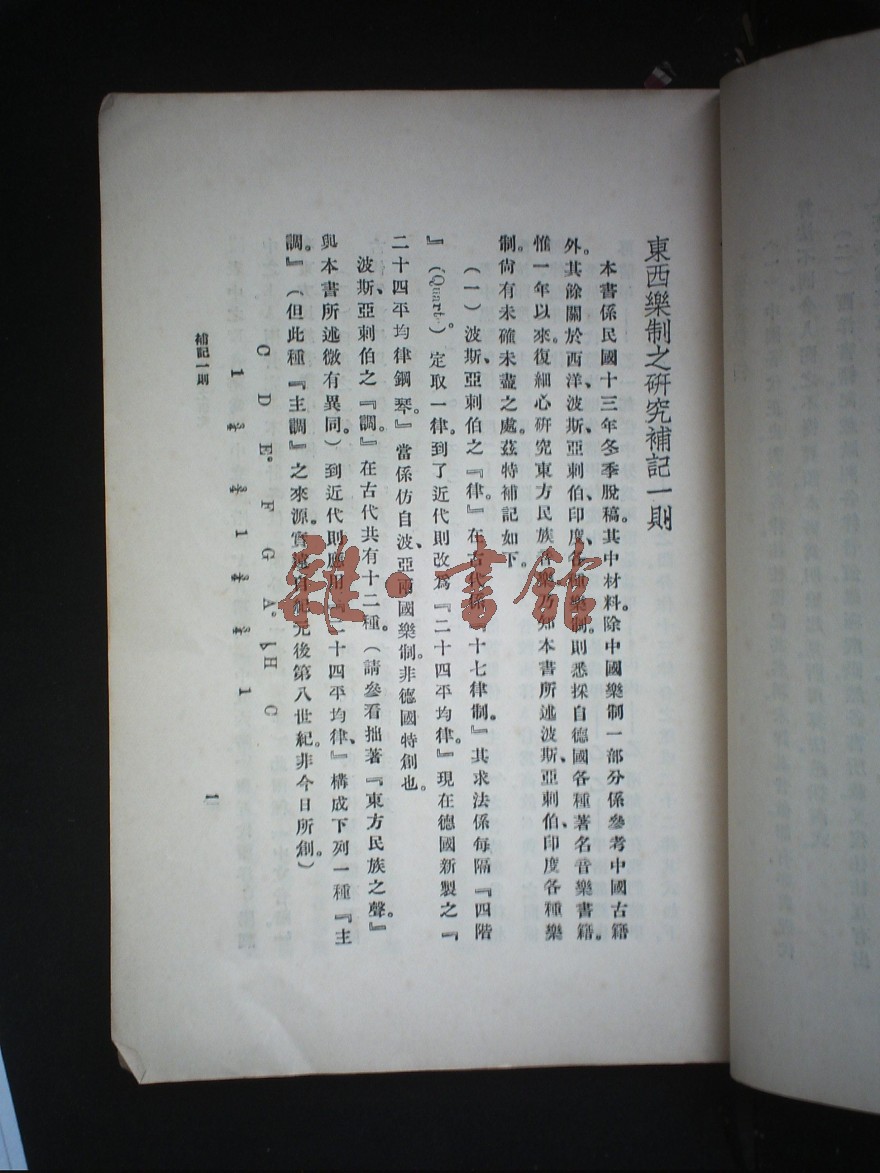 東西樂制之研究補記一則
本書係民國十三年冬季脫稿。其中材料。除中國樂制一部分係參考中國古籍
外。其餘關於西洋、波斯、亞剌伯、印度、各種樂制。則悉採自德國各種著名音樂書籍。
惟一年以來。復細心研究東方民族音樂。乃知本書所述波斯、亞剌伯、印度各種樂
制。尙有未確未盡之處。茲特補記如下。
（一）波斯、亞剌伯之『律』。在古代係『十七律制』。其求法係每隔『四階
』（Quart）。定取一律。到了近代則改爲『二十四平均律』。現在德國新製之『
二十四平均律鋼琴』。當係仿自波、亞兩國樂制。非德國特創也。
波斯、亞剌伯之『調』。在古代共有十二種。（請參看拙著『東方民族之聲』
與本書所述微有異同。）到近代則應用『二十四平均律』、構成下列一種『主
調』。（但此種『主調』之來源。實遠自紀元後第八世紀。非今日所創。）
C D E° F G A° ♭H C
1 ¾ ¾ 1 ¾ ¾ 1
補記一則
一
雜·書館